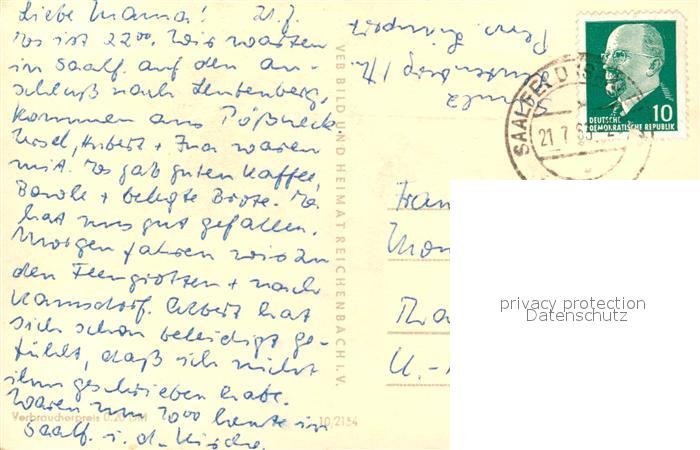 Liebe Mama! 21.7.
Es ist 22⁰⁰. Wir warten
in Saalf. auf den An-
schluß nach Leutenberg,
kommen aus Pößneck.
Ursel, Hubert + Ina waren
mit. Es gab guten Kaffee,
Bowle + belegte Brote. Es
hat uns gut gefallen.
Morgen fahren wir zu
den Feengrotten + nach
Kamsdorf. Albert hat
sich schon beleidigt ge-
fühlt, daß ich nicht
ihm geschrieben habe.
Waren um 20⁰⁰ heute in
Saalf. i. d. Kirche.
Verbraucherpreis 0.20 DM
10/2154
VEB BILD UND HEIMAT REICHENBACH I. V.
Leutenberg / Th.
Pens.
SAALFELD (S
21.7.6
10
DEUTSCHE
DEMOKRATISCHE REPUBLIK
Frau
privacy protection
Datenschutz